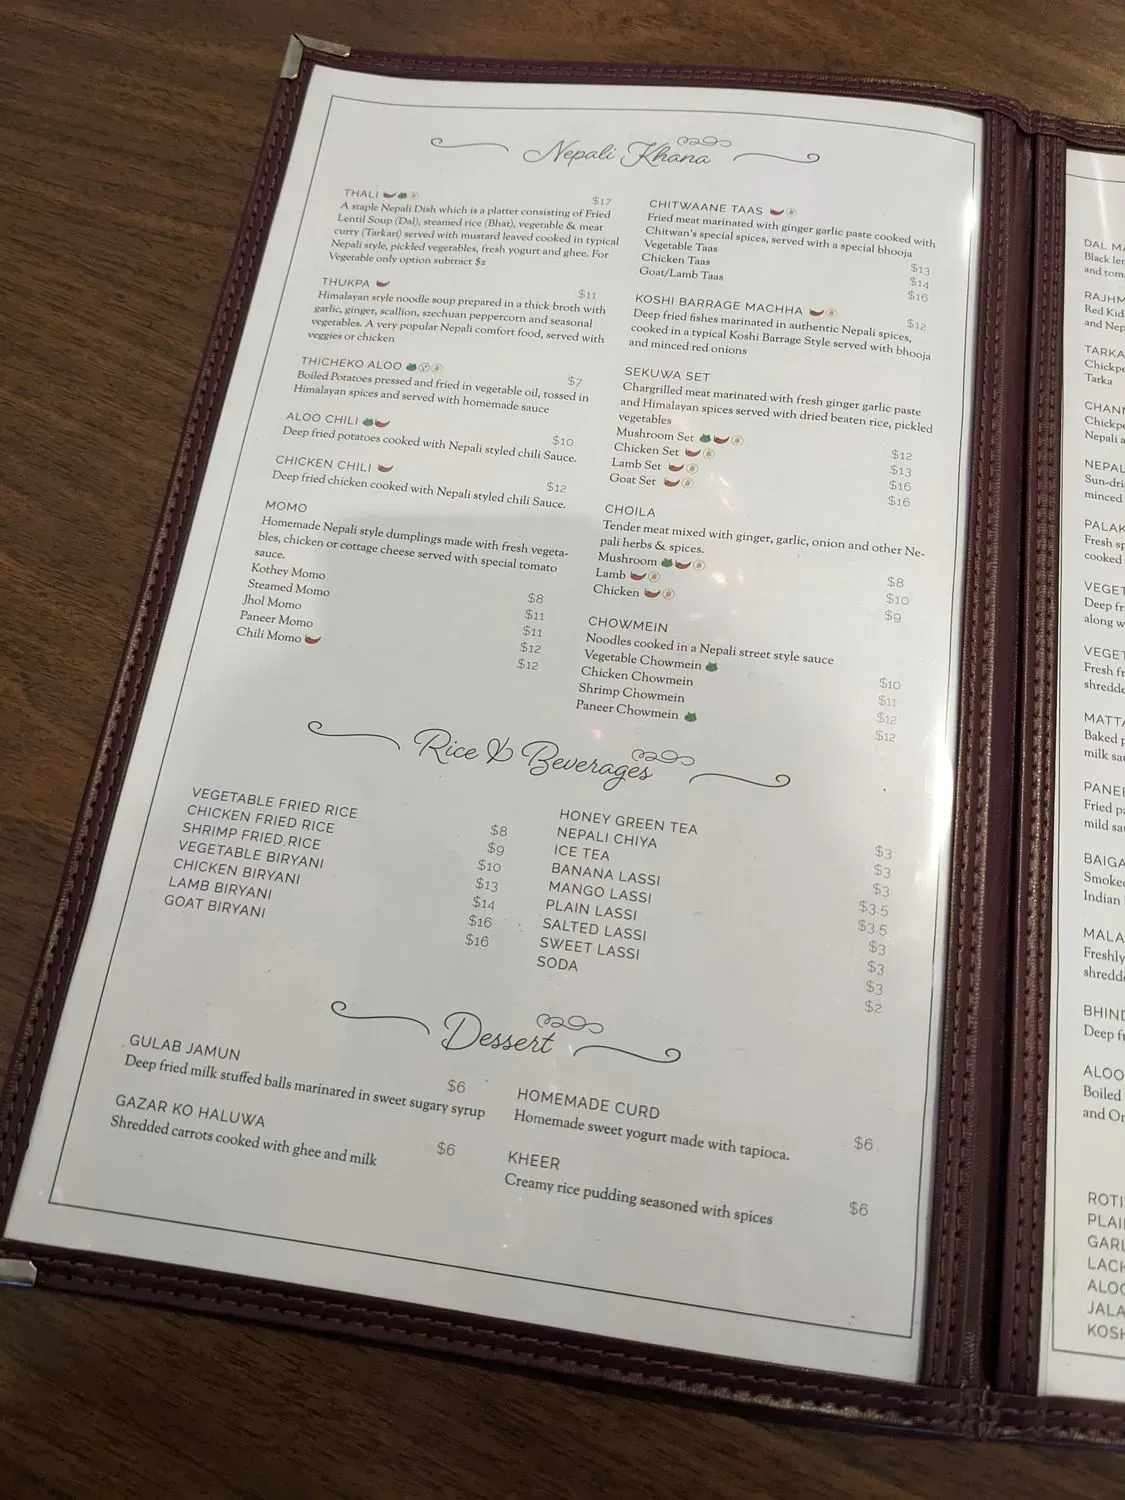 Nepali Khana
THALI $17
A staple Nepali Dish which is a platter consisting of Fried
Lentil Soup (Dal), steamed rice (Bhat), vegetable & meat
curry (Tarkari) served with mustard leaved cooked in typical
Nepali style, pickled vegetables, fresh yogurt and ghee. For
Vegetable only option subtract $2
THUKPA $11
Himalayan style noodle soup prepared in a thick broth with
garlic, ginger, scallion, szechuan peppercorn and seasonal
vegetables. A very popular Nepali comfort food, served with
veggies or chicken
THICHEKO ALOO $7
Boiled Potatoes pressed and fried in vegetable oil, tossed in
Himalayan spices and served with homemade sauce
ALOO CHILI $10
Deep fried potatoes cooked with Nepali styled chili Sauce.
CHICKEN CHILI $12
Deep fried chicken cooked with Nepali styled chili Sauce.
MOMO
Homemade Nepali style dumplings made with fresh vegeta-
bles, chicken or cottage cheese served with special tomato
sauce.
Kothey Momo $8
Steamed Momo $11
Jhol Momo $11
Paneer Momo $12
Chili Momo $12
CHITWAANE TAAS
Fried meat marinated with ginger garlic paste cooked with
Chitwan's special spices, served with a special bhooja
Vegetable Taas $13
Chicken Taas $14
Goat/Lamb Taas $16
KOSHI BARRAGE MACHHA $12
Deep fried fishes marinated in authentic Nepali spices,
cooked in a typical Koshi Barrage Style served with bhooja
and minced red onions
SEKUWA SET
Chargrilled meat marinated with fresh ginger garlic paste
and Himalayan spices served with dried beaten rice, pickled
vegetables
Mushroom Set $12
Chicken Set $13
Lamb Set $16
Goat Set $16
CHOILA
Tender meat mixed with ginger, garlic, onion and other Ne-
pali herbs & spices.
Mushroom $8
Lamb $10
Chicken $9
CHOWMEIN
Noodles cooked in a Nepali street style sauce
Vegetable Chowmein $10
Chicken Chowmein $11
Shrimp Chowmein $12
Paneer Chowmein $12
Rice & Beverages
VEGETABLE FRIED RICE $8
CHICKEN FRIED RICE $9
SHRIMP FRIED RICE $10
VEGETABLE BIRYANI $13
CHICKEN BIRYANI $14
LAMB BIRYANI $16
GOAT BIRYANI $16
HONEY GREEN TEA $3
NEPALI CHIYA $3
ICE TEA $3
BANANA LASSI $3.5
MANGO LASSI $3.5
PLAIN LASSI $3
SALTED LASSI $3
SWEET LASSI $3
SODA $2
Dessert
GULAB JAMUN $6
Deep fried milk stuffed balls marinared in sweet sugary syrup
GAZAR KO HALUWA $6
Shredded carrots cooked with ghee and milk
HOMEMADE CURD $6
Homemade sweet yogurt made with tapioca.
KHEER $6
Creamy rice pudding seasoned with spices
DAL
Black
and
Red
and
TARKA
Chickpe
Tarka
Nepali
minced
PALAK
Fresh
cooked
Deep
along
Fresh
MATTA
Baked
milk
Fried
mild
Smoked
Indian
Freshly
Deep
ALOO
Boiled
and
ROTI